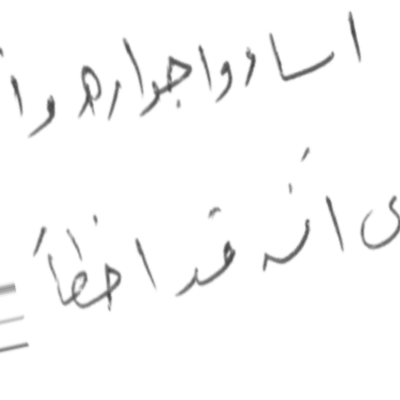 اساءوا جواره وا
ى انه قد اخطأ